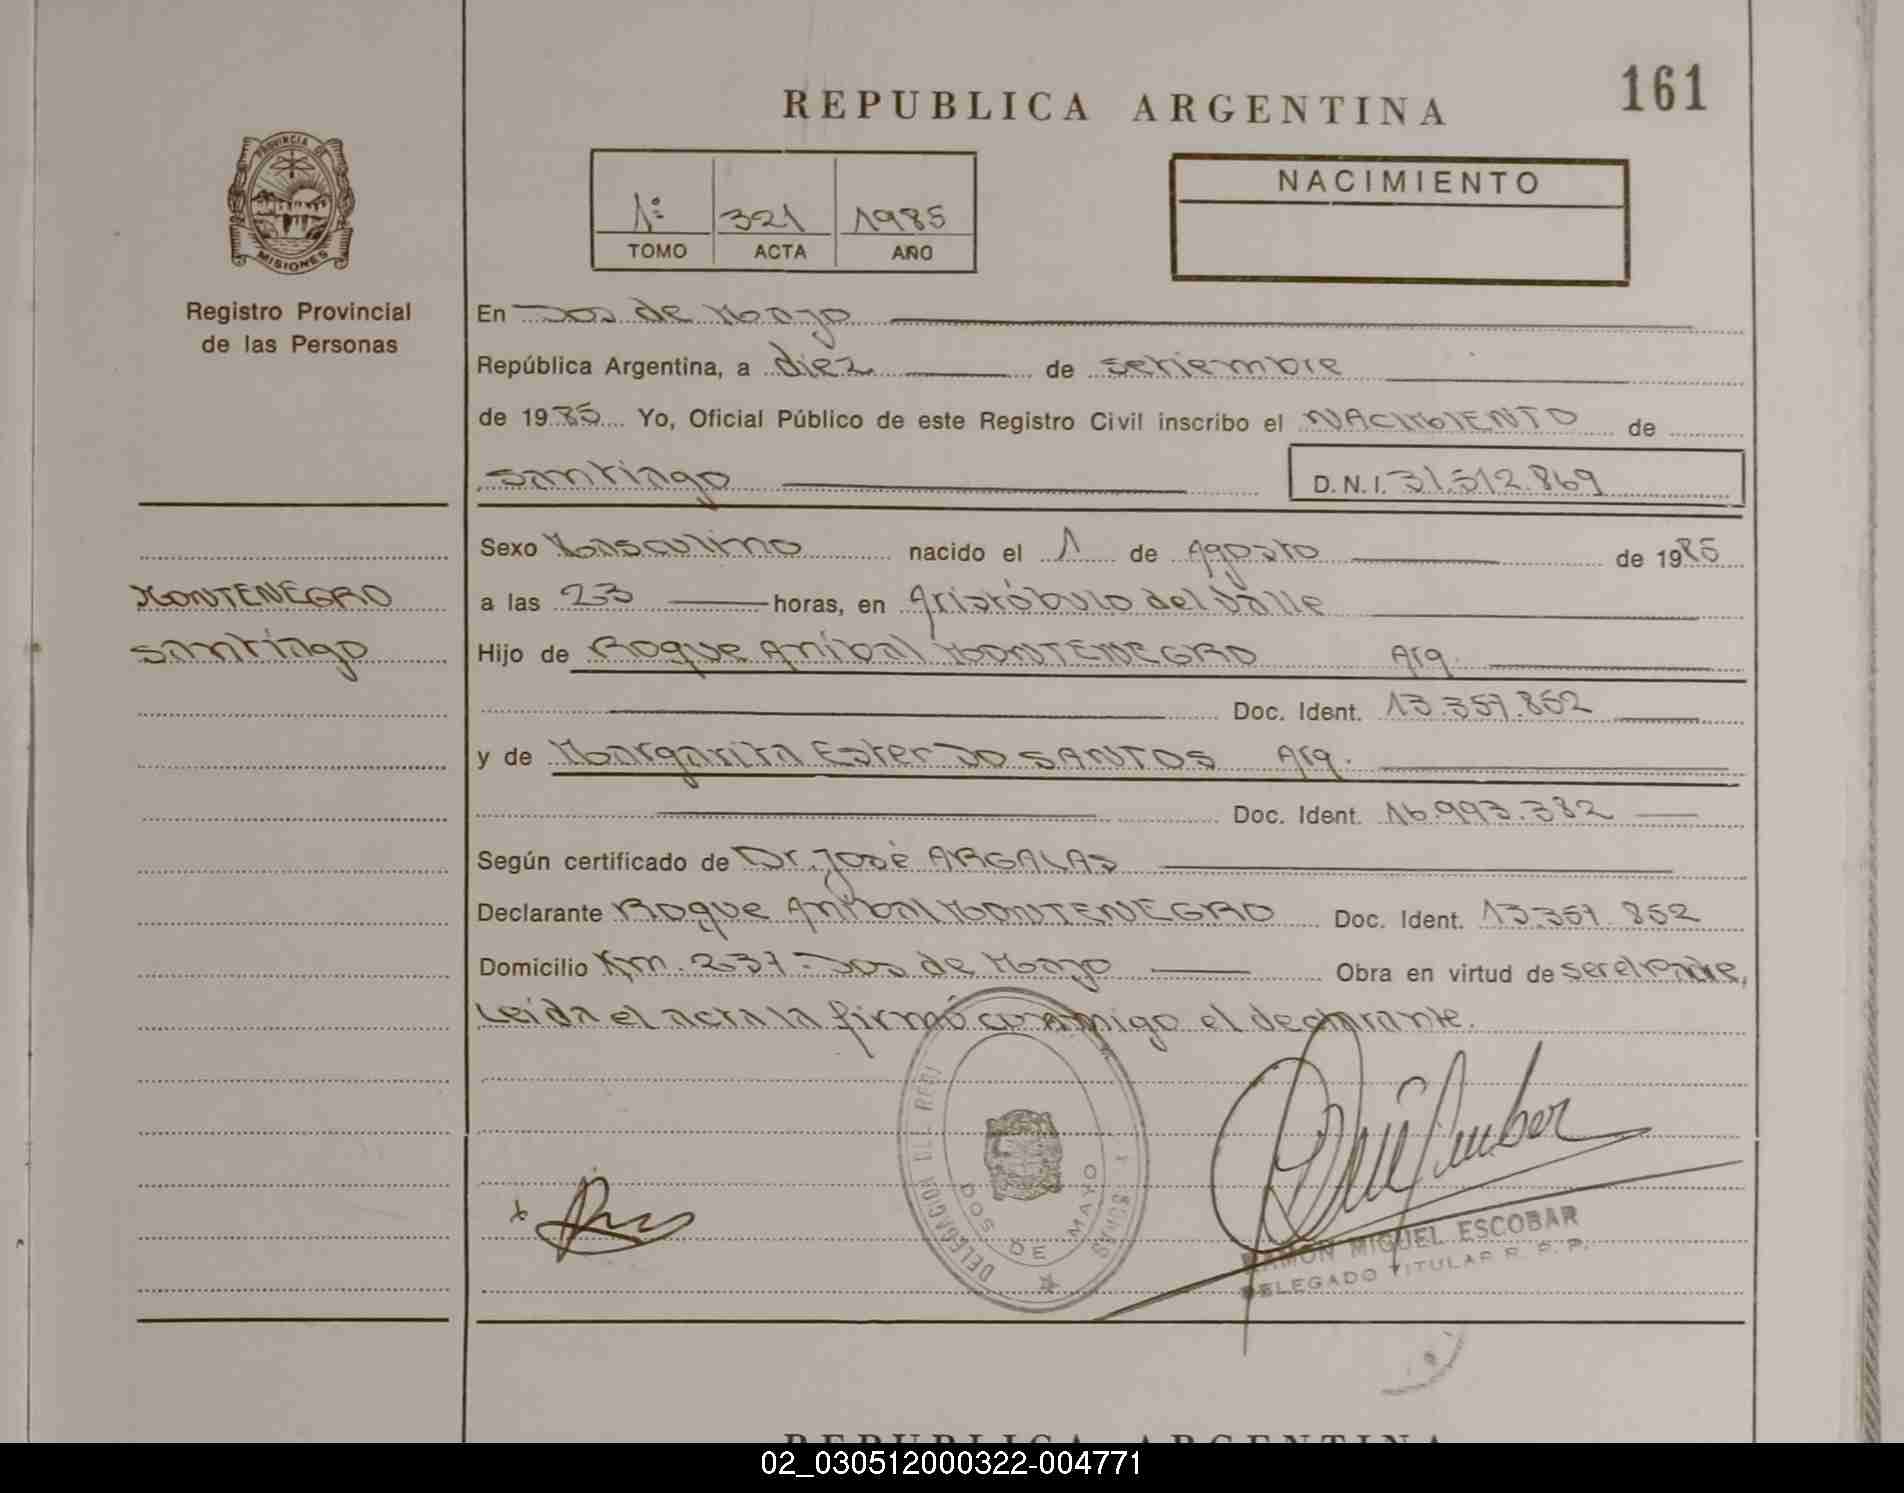 161
REPUBLICA ARGENTINA
PROVINCIA DE
MISIONES
Registro Provincial
de las Personas
1º 321 1985
TOMO ACTA AÑO
NACIMIENTO
En Dos de Mayo
República Argentina, a diez de setiembre
de 19 85 Yo, Oficial Público de este Registro Civil inscribo el NACIMIENTO de
Santiago D.N.I. 31.512.869
Sexo Masculino nacido el 1 de Agosto de 19 85
MONTENEGRO
Santiago
a las 23 horas, en Aristóbulo del Valle
Hijo de Roque Aníbal MONTENEGRO Arg.
Doc. Ident. 13.357.852
y de Margarita Ester DO SANTOS Arg.
Doc. Ident. 16.993.382
Según certificado de Dr. José ARGALAS
Declarante Roque Aníbal MONTENEGRO Doc. Ident. 13.357.852
Domicilio Km. 237 - Dos de Mayo Obra en virtud de ser el padre,
Leída el acta la firmó conmigo el declarante.
DELEGACION DEL
DOS DE MAYO
RAMON MIGUEL ESCOBAR
DELEGADO TITULAR R. P. P.
REPUBLICA ARGENTINA
02_030512000322-004771